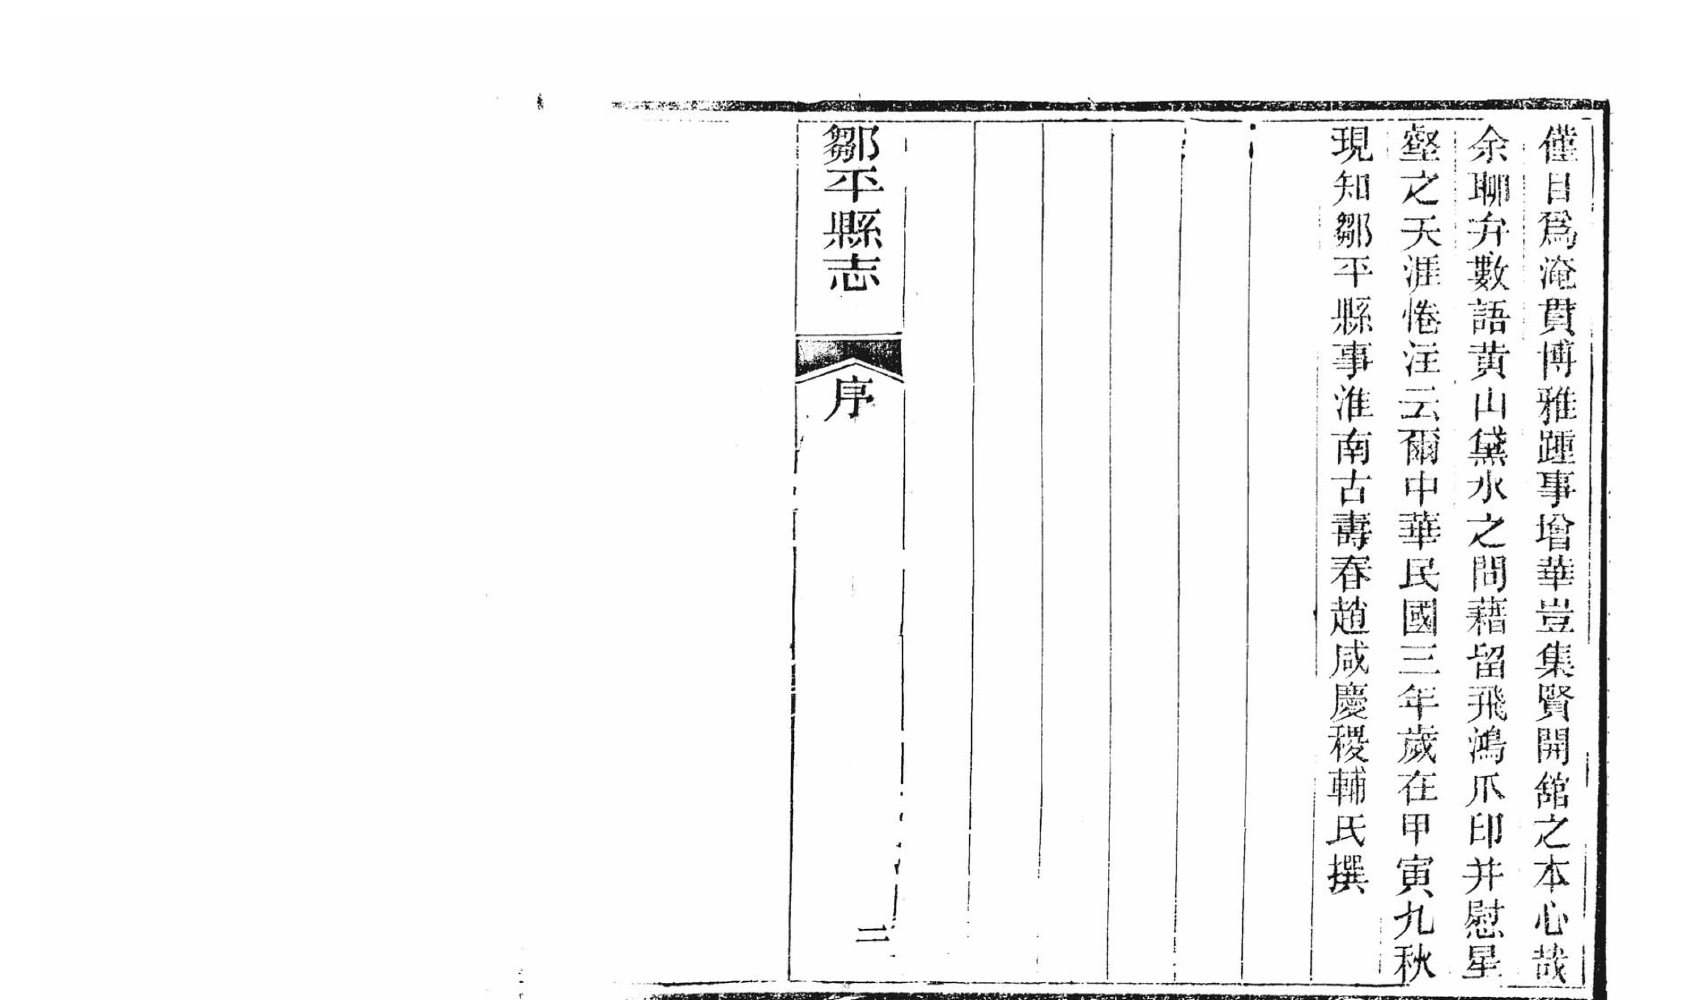 僅目爲淹貫博雅踵事增華豈集賢開舘之本心哉
余聊弁數語黄山黛水之間藉留飛鴻爪印并慰星
壑之天涯惓注云爾中華民國三年歲在甲寅九秋
現知鄒平縣事淮南古壽春趙咸慶稷輔氏撰
鄒平縣志
序
三